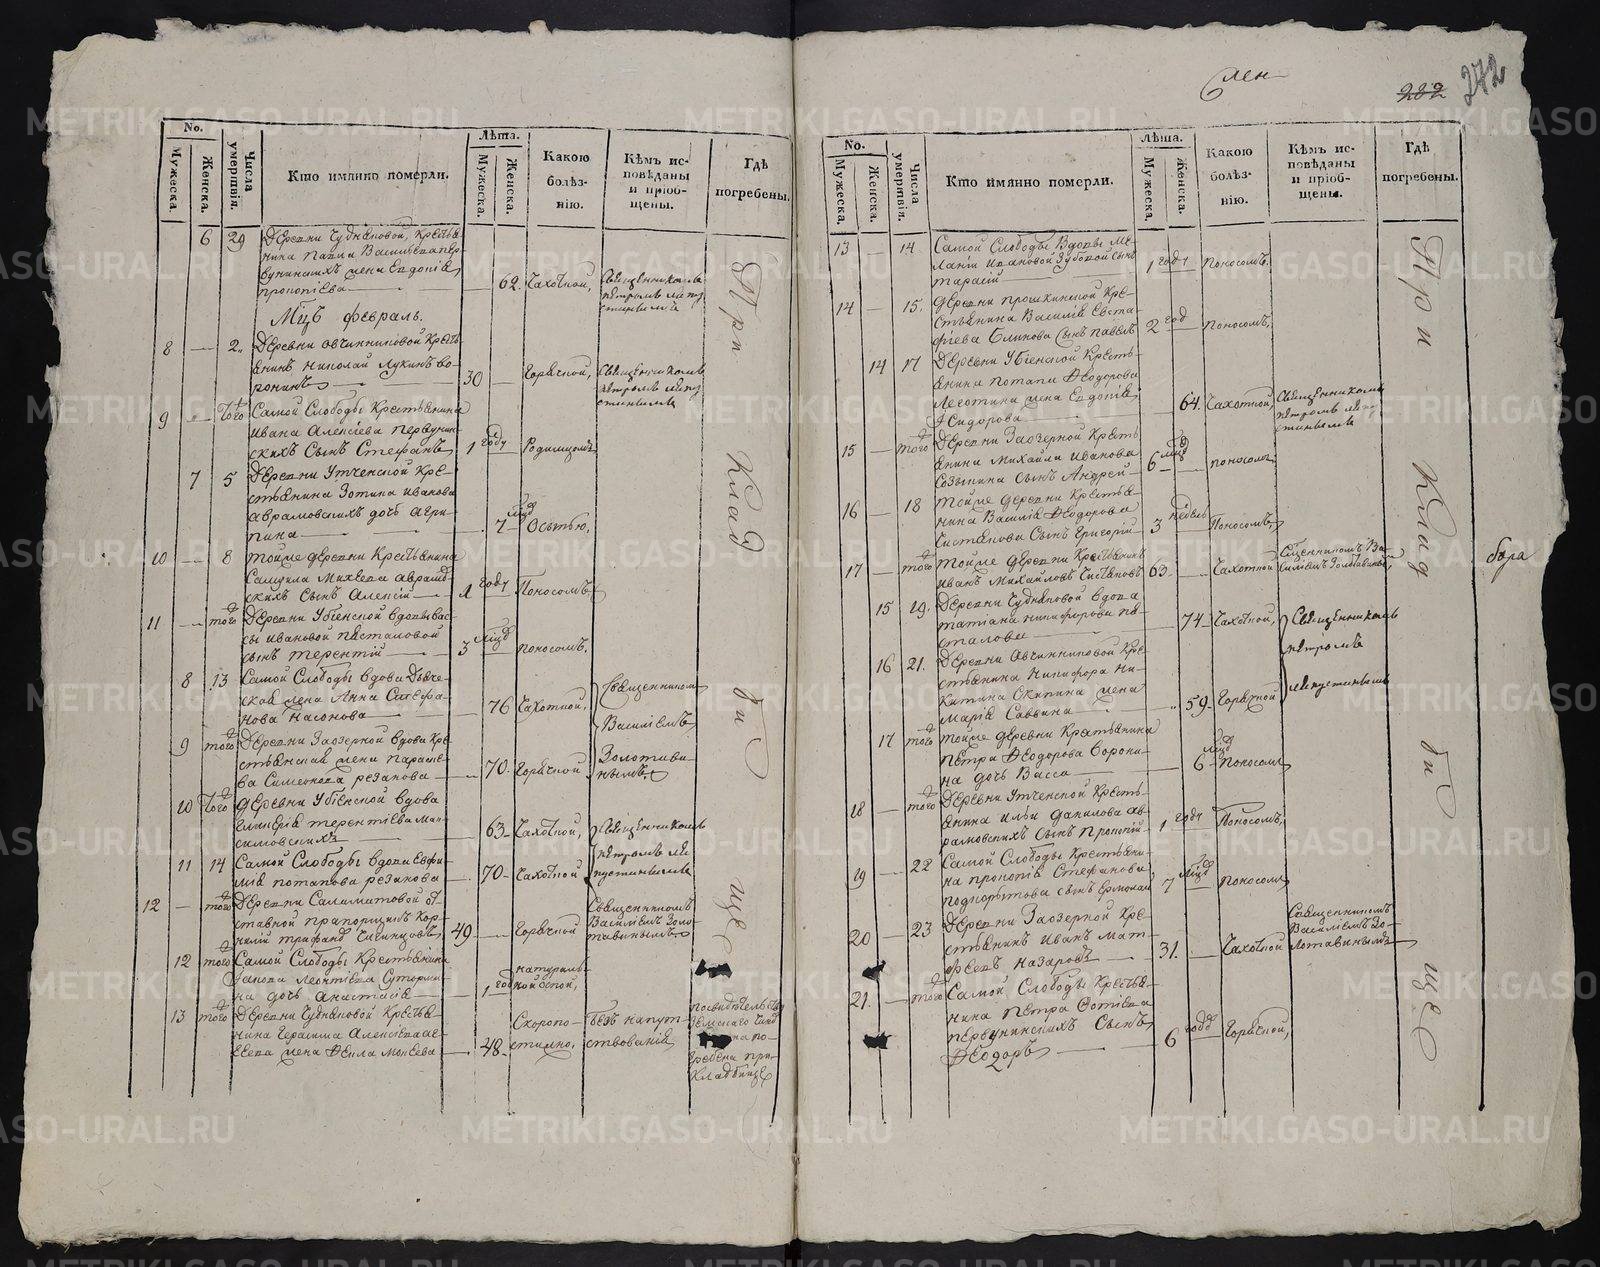 член
282
272
No.
Мужеска.
Женска.
Числа умертвія.
Кто имянно померли.
Лѣта.
Мужеска.
Женска.
Какою болѣз-
нію.
Кѣмъ ис-
повѣданы
и пріоб-
щены.
Гдѣ
погребены.
6 29 Деревни Чудняковой, кресть-
янина Павла Васильева пер-
вунинскихъ жена Евдокія
прокопіева 62. Чахоткой, Священникомъ
петромъ
Мцъ февраль.
8 — 2. Деревни Овчинниковой кресть-
янинъ Николай Лукинъ во-
ронинъ 30 Горячкой, Священникомъ
петромъ
9 — того Самой Слободы Крестьянина
Ивана Алексіева первунин-
скихъ Сынъ Стефанъ 1 году Родимцомъ
7 5 Деревни Утченской Кре-
стьянина Зотика Иванова
аврамовскихъ дочь агри-
пина 7 мцд Осьпою,
10 — 8 Тойже деревни Крестьянина
Самуила Михеева аврамов-
скихъ Сынъ Алексій 1 году Поносомъ,
11 — того Деревни Убіенской вдовы Вас-
сы Ивановой песталовой
сынъ терентій 3 мцд поносомъ.
8 13 Самой Слободы вдова Дьяче-
ская жена Анна Стефа-
нова Насонова 76 Чахоткой, Священникомъ
Василіемъ
9 того Деревни Заозерной вдова Кре-
стьянская жена параске-
ва Симеонова резанова 70. Горячкой Золотави-
нымъ,
10 того деревни Убіенской вдова
Гликерія терентіева мак-
симовскихъ 63 Чахоткой, Священникомъ
петромъ
11 14 Самой Слободы вдова Евфи-
мія потапова резанова 70 Чахоткой
12 — того Деревни Саламатовой от-
ставной прапорщикъ Кор-
нилій трифановъ 49 Горячкой Священникомъ
Василіемъ Золо-
тавинымъ
12 того Самой Слободы Крестьянина
Якова Леонтіева
на дочь анастасія 1 год натураль-
ной оспой,
13 того Деревни Чудняковой Кресть-
янина Герасима Алексіева
жена Фекла Моисеева 48 Скоропо-
стижно, безъ напут-
ствованія по свидѣтельству
Земскаго
по-
гребена при
Кладбище
При Кладбище
No.
Мужеска.
Женска.
Числа умертвія.
Кто имянно померли.
Лѣта.
Мужеска.
Женска.
Какою
болѣз-
нію.
Кѣмъ ис-
повѣданы
и пріоб-
щены.
Гдѣ
погребены.
13 — 14 Самой Слободы Вдовы Ме-
ланіи Ивановой Зубовой сынъ
тарасій 1 году поносомъ.
14 — 15. деревни прошкинской Кре-
стьянина Василія Евста-
фіева Блинова Сынъ павелъ 2 год поносомъ,
14 17 Деревни Убіенской Кресть-
янина потапа Феодорова
жена Евдокія
Исидорова 64. Чахоткой, Священникомъ
петромъ
15 — того Деревни Заозерной Кресть-
янина Михаила Иванова
Созыкина Сынъ Андрей 6 мцд поносомъ
16 — 18 Тойже деревни Крестья-
нина Василія Феодорова
Чистякова Сынъ Григорій 3 недѣль Поносомъ,
17 — того Тойже деревни Крестьянинъ
Иванъ Михайловъ Чистяковъ 63. Чахоткой Священникомъ Ва-
силіемъ Золотавинымъ,
15 19. Деревни Чудняковой вдова
татіана никифорова пе-
сталова 74 Чахоткой, Священникомъ
петромъ
16 21. Деревни Овчинниковой Кре-
стьянина Никифора Ни-
китина Скипина жена
Марія Саввина 59. Горячкой
17 того Тойже деревни Крестьянина
Петра Феодорова Ворони-
на дочь Васса 6 мцд поносомъ
18 — того Деревни Утченской Кресть-
янина Ильи Данилова ав-
рамовскихъ Сынъ Прокопій 1 году Поносомъ,
19 — 22 Самой Слободы Крестьяни-
на прокопія Стефанова
подкорытова сынъ Ермолай 7 мцд поносомъ
20 — 23 Деревни Заозерной Кре-
стьянинъ Иванъ Мат-
феевъ назаровъ 31. Чахоткой Священникомъ
Василіемъ Зо-
лотавинымъ
21. — того Самой Слободы Крестья-
нина петра Фотіева
первунинскихъ Сынъ
Феодоръ 6 годъ Горячкой,
При Кладбище
METRIKI.GASO-URAL.RU